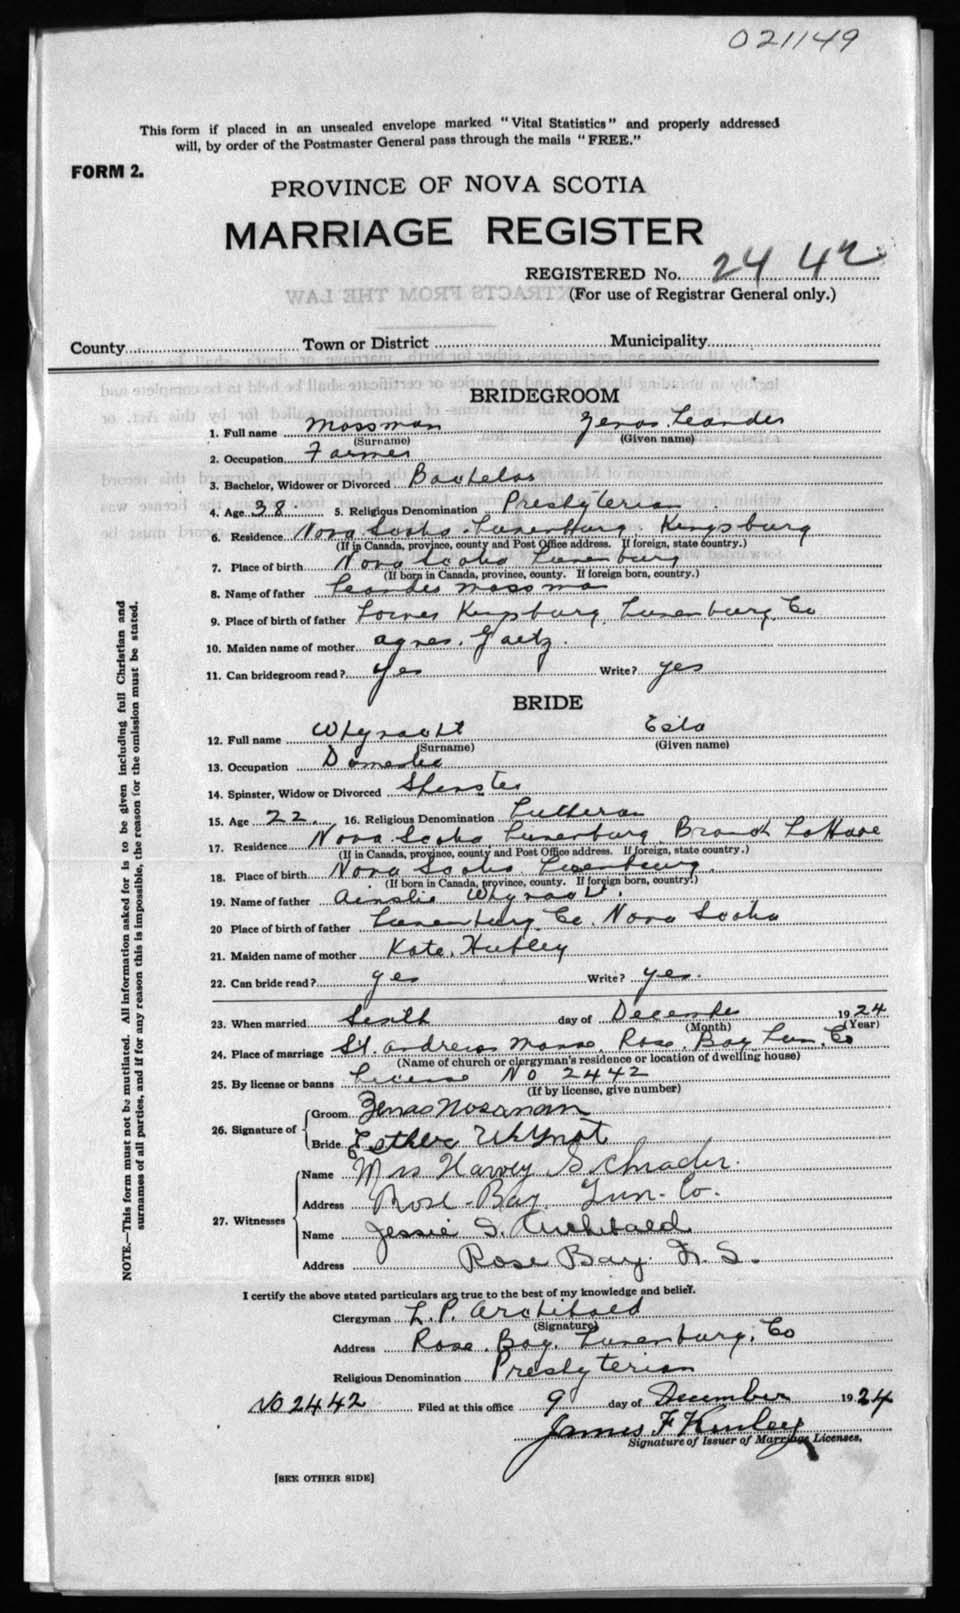 021149
This form if placed in an unsealed envelope marked "Vital Statistics" and properly addressed
will, by order of the Postmaster General pass through the mails "FREE."
FORM 2.
PROVINCE OF NOVA SCOTIA
MARRIAGE REGISTER
REGISTERED No. 2442
(For use of Registrar General only.)
County Town or District Municipality
BRIDEGROOM
1. Full name Mossman Zenas Leander
(Surname) (Given name)
2. Occupation Farmer
3. Bachelor, Widower or Divorced Bachelor
4. Age 38. 5. Religious Denomination Presbyterian
6. Residence Nova Scotia Lunenburg Kingsburg
(If in Canada, province, county and Post Office address. If foreign, state country.)
7. Place of birth Nova Scotia Lunenburg
(If born in Canada, province, county. If foreign born, country.)
8. Name of father Leander Mossman
9. Place of birth of father Kingsburg, Lunenburg, Co
10. Maiden name of mother Agnes. Gaetz.
11. Can bridegroom read? yes Write? yes
BRIDE
12. Full name Whynacht
(Surname) (Given name)
13. Occupation Domestic
14. Spinster, Widow or Divorced Spinster
15. Age 22. 16. Religious Denomination Lutheran
17. Residence Nova Scotia, Lunenburg Branch LaHave
(If in Canada, province, county and Post Office address. If foreign, state country.)
18. Place of birth Nova Scotia Lunenburg.
(If born in Canada, province, county. If foreign born, country.)
19. Name of father Ainslie Whynacht.
20 Place of birth of father Lunenburg Co. Nova Scotia
21. Maiden name of mother Kate. Hubley
22. Can bride read? yes Write? yes.
23. When married day of December 1924
(Month) (Year)
24. Place of marriage St. Andrews Manse, Rose Bay Lun. Co
(Name of church or clergyman's residence or location of dwelling house)
25. By license or banns License No 2442
(If by license, give number)
26. Signature of
Groom Zenas Mossman
Bride Esther Whynot
27. Witnesses
Name Mrs Harvey Schnader.
Address Rose-Bay Lun-Co.
Name Jessie S. Archibald
Address Rose Bay N. S.
I certify the above stated particulars are true to the best of my knowledge and belief.
Clergyman L. P. Archibald
(Signature)
Address Rose Bay, Lunenburg, Co
Religious Denomination Presbyterian
No 2442 Filed at this office 9 day of December 1924
James F Kinley
Signature of Issuer of Marriage Licenses.
[SEE OTHER SIDE]
NOTE.—This form must not be mutilated. All information asked for is to be given including full Christian and
surnames of all parties, and if for any reason this is impossible, the reason for the omission must be stated.